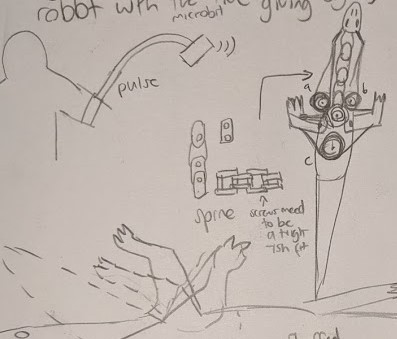 robot with the
giving
microbit
pulse
a
b
c
spine
screws need
to be
a tigh
fit